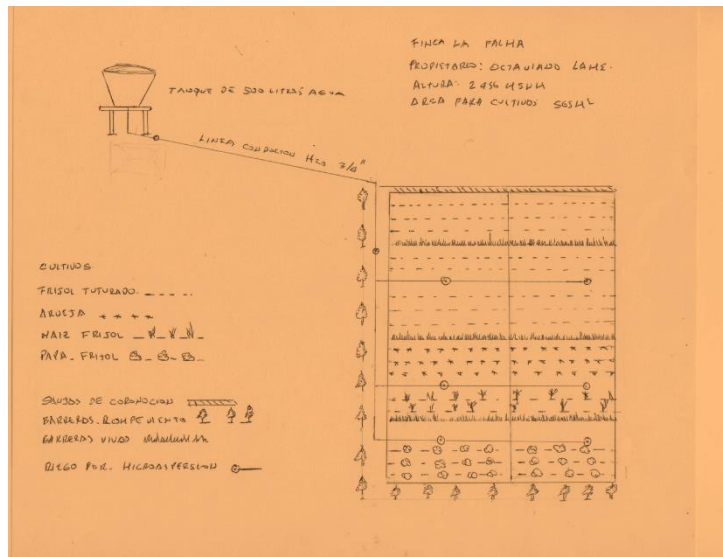 FINCA LA PALMA
PROPIETARIO: OCTAVIANO LAME.
ALTURA: 2456 MSNM
AREA PARA CULTIVOS 565 M²
TANQUE DE 500 LITROS AGUA
LINEA CONDUCION H20 3/4"
CULTIVOS
FRIJOL TUTURADO
ARVEJA
MAIZ FRIJOL
PAPA - FRIJOL
SANJAS DE CORONACION
BARRERAS. ROMPE VIENTO
BARRERAS VIVAS
RIEGO POR. MICROASPERSION